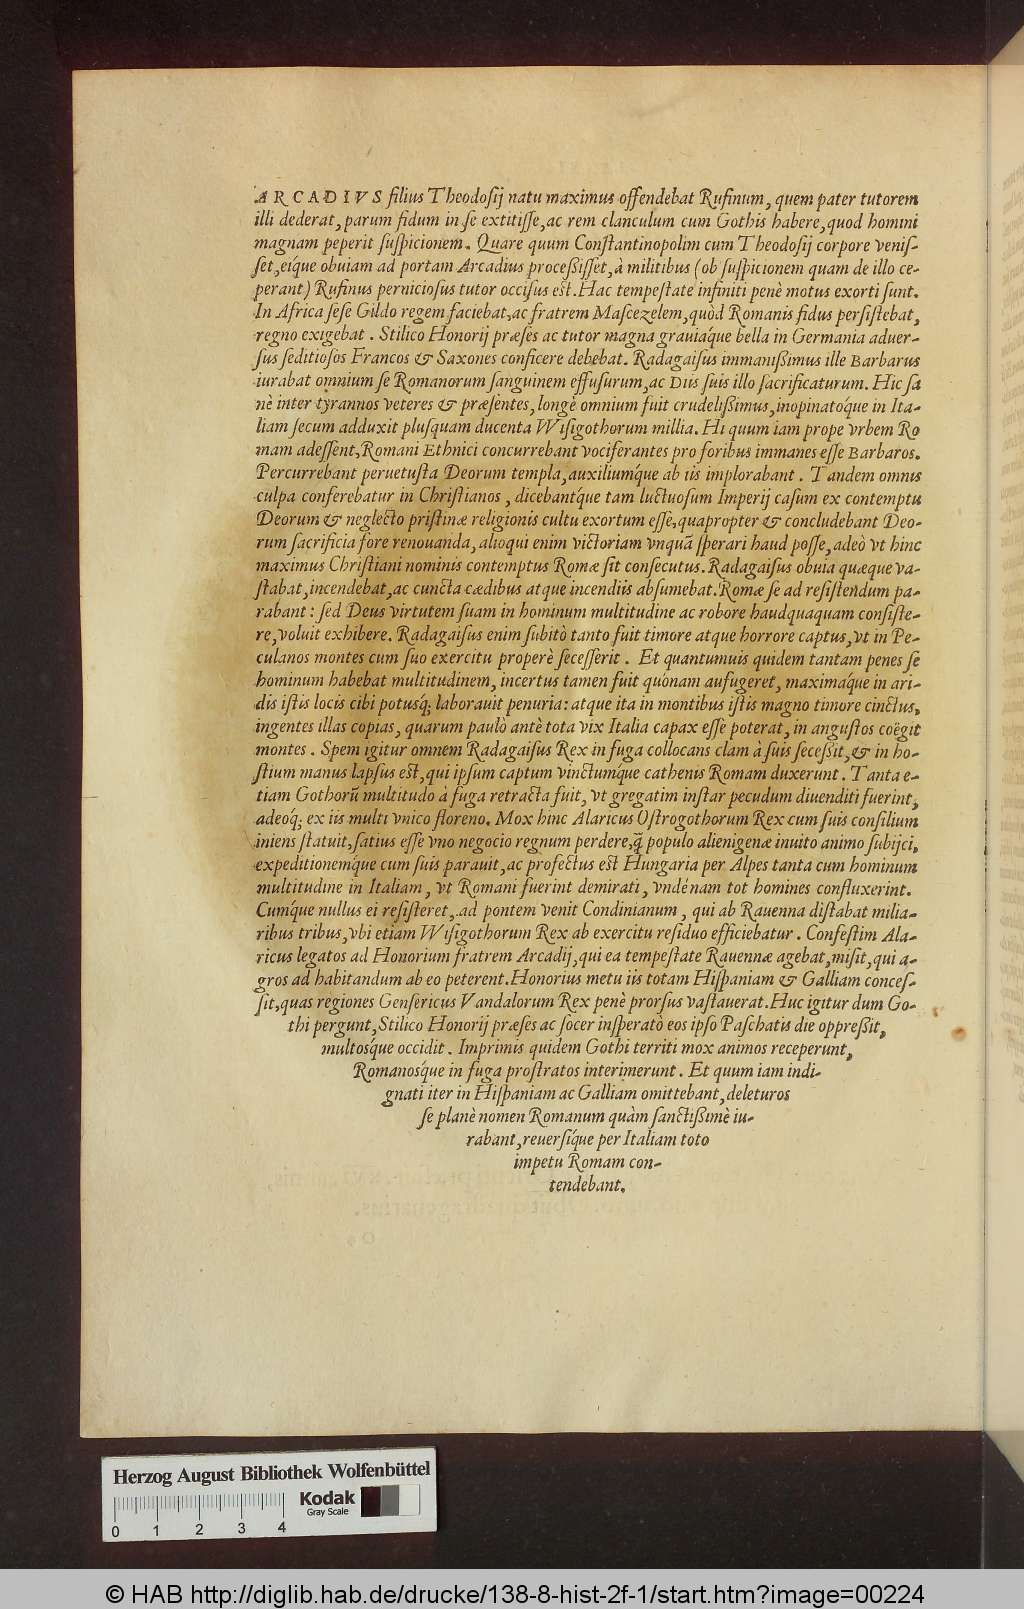 ARCADIVS filius Theodosij natu maximus offendebat Rufinum, quem pater tutorem
illi dederat, parum fidum in se extitisse, ac rem clanculum cum Gothis habere, quod homini
magnam peperit suspicionem. Quare quum Constantinopolim cum Theodosij corpore venis-
set, eíque obuiam ad portam Arcadius processisset, à militibus (ob suspicionem quam de illo ce-
perant) Rufinus perniciosus tutor occisus est. Hac tempestate infiniti penè motus exorti sunt.
In Africa sese Gildo regem faciebat, ac fratrem Mascezelem, quòd Romanis fidus persistebat,
regno exigebat. Stilico Honorij præses ac tutor magna grauiáque bella in Germania aduer-
sus seditiosos Francos & Saxones conficere debebat. Radagaisus immanissimus ille Barbarus
iurabat omnium se Romanorum sanguinem effusurum, ac Diis suis illo sacrificaturum. Hic sa
nè inter tyrannos veteres & præsentes, longè omnium fuit crudelissimus, inopinatóque in Ita-
liam secum adduxit plusquam ducenta Wisigothorum millia. Hi quum iam prope vrbem Ro
mam adessent, Romani Ethnici concurrebant vociferantes pro foribus immanes esse Barbaros.
Percurrebant peruetusta Deorum templa, auxiliumq́ue ab iis implorabant. Tandem omnis
culpa conferebatur in Christianos, dicebantq́ue tam luctuosum Imperij casum ex contemptu
Deorum & neglecto pristinæ religionis cultu exortum esse, quapropter & concludebant Deo-
rum sacrificia fore renouanda, alioqui enim victoriam vnquã sperari haud posse, adeò vt hinc
maximus Christiani nominis contemptus Romæ sit consecutus. Radagaisus obuia quæque va-
stabat, incendebat, ac cuncta cædibus atque incendiis absumebat. Romæ se ad resistendum pa-
rabant: sed Deus virtutem suam in hominum multitudine ac robore haudquaquam consiste-
re, voluit exhibere. Radagaisus enim subitò tanto fuit timore atque horrore captus, vt in Pe-
culanos montes cum suo exercitu properè secesserit. Et quantumuis quidem tantam penes se
hominum habebat multitudinem, incertus tamen fuit quónam aufugeret, maximáque in ari-
dis istis locis cibi potusq́; laborauit penuria: atque ita in montibus istis magno timore cinctus,
ingentes illas copias, quarum paulò antè tota vix Italia capax esse poterat, in angustos coëgit
montes. Spem igitur omnem Radagaisus Rex in fuga collocans clam à suis secessit, & in ho-
stium manus lapsus est, qui ipsum captum vinctumq́ue cathenis Romam duxerunt. Tanta e-
tiam Gothorũ multitudo à fuga retracta fuit, vt gregatim instar pecudum diuenditi fuerint,
adeoq́; ex iis multi vnico floreno. Mox hinc Alaricus Ostrogothorum Rex cum suis consilium
iniens statuit, satius esse vno negocio regnum perdere, q̃ populo alienigenæ inuito animo subijci,
expeditionemq́ue cum suis parauit, ac profectus est Hungaria per Alpes tanta cum hominum
multitudine in Italiam, vt Romani fuerint demirati, vndénam tot homines confluxerint.
Cumq́ue nullus ei resisteret, ad pontem venit Condinianum, qui ab Rauenna distabat milia-
ribus tribus, vbi etiam Wisigothorum Rex ab exercitu residuo efficiebatur. Confestim Ala-
ricus legatos ad Honorium fratrem Arcadij, qui ea tempestate Rauennæ agebat, misit, qui a-
gros ad habitandum ab eo peterent. Honorius metu iis totam Hispaniam & Galliam conces-
sit, quas regiones Gensericus Vandalorum Rex penè prorsus vastauerat. Huc igitur dum Go-
thi pergunt, Stilico Honorij præses ac socer insperatò eos ipso Paschatis die oppressit,
multosq́ue occidit. Imprimis quidem Gothi territi mox animos receperunt,
Romanosq́ue in fuga prostratos interimerunt. Et quum iam indi-
gnati iter in Hispaniam ac Galliam omittebant, deleturos
se planè nomen Romanum quàm sanctissimè iu-
rabant, reuersíque per Italiam toto
impetu Romam con-
tendebant.
Herzog August Bibliothek Wolfenbüttel
Kodak
Gray Scale
0 1 2 3 4
© HAB http://diglib.hab.de/drucke/138-8-hist-2f-1/start.htm?image=00224